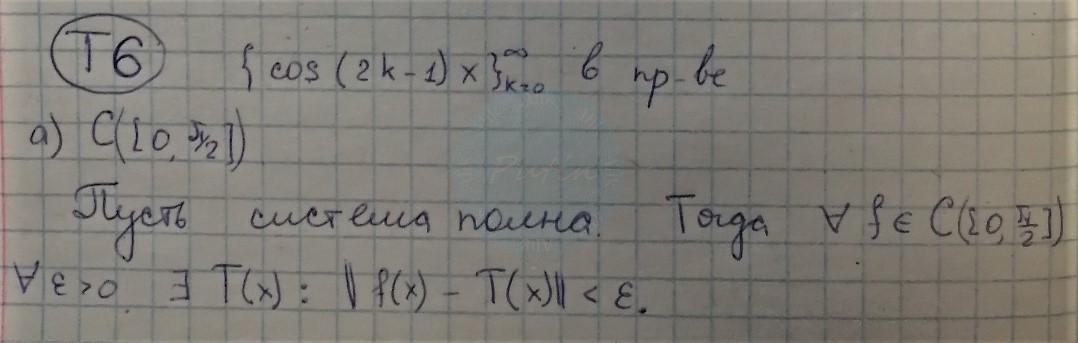 Т6 { cos (2k-1) x }_{k=0}^∞ в пр-ве
а) C([0, π/2])
Пусть система полна. Тогда ∀ f ∈ C([0, π/2])
∀ ε>0 ∃ T(x): ‖f(x) - T(x)‖ < ε.